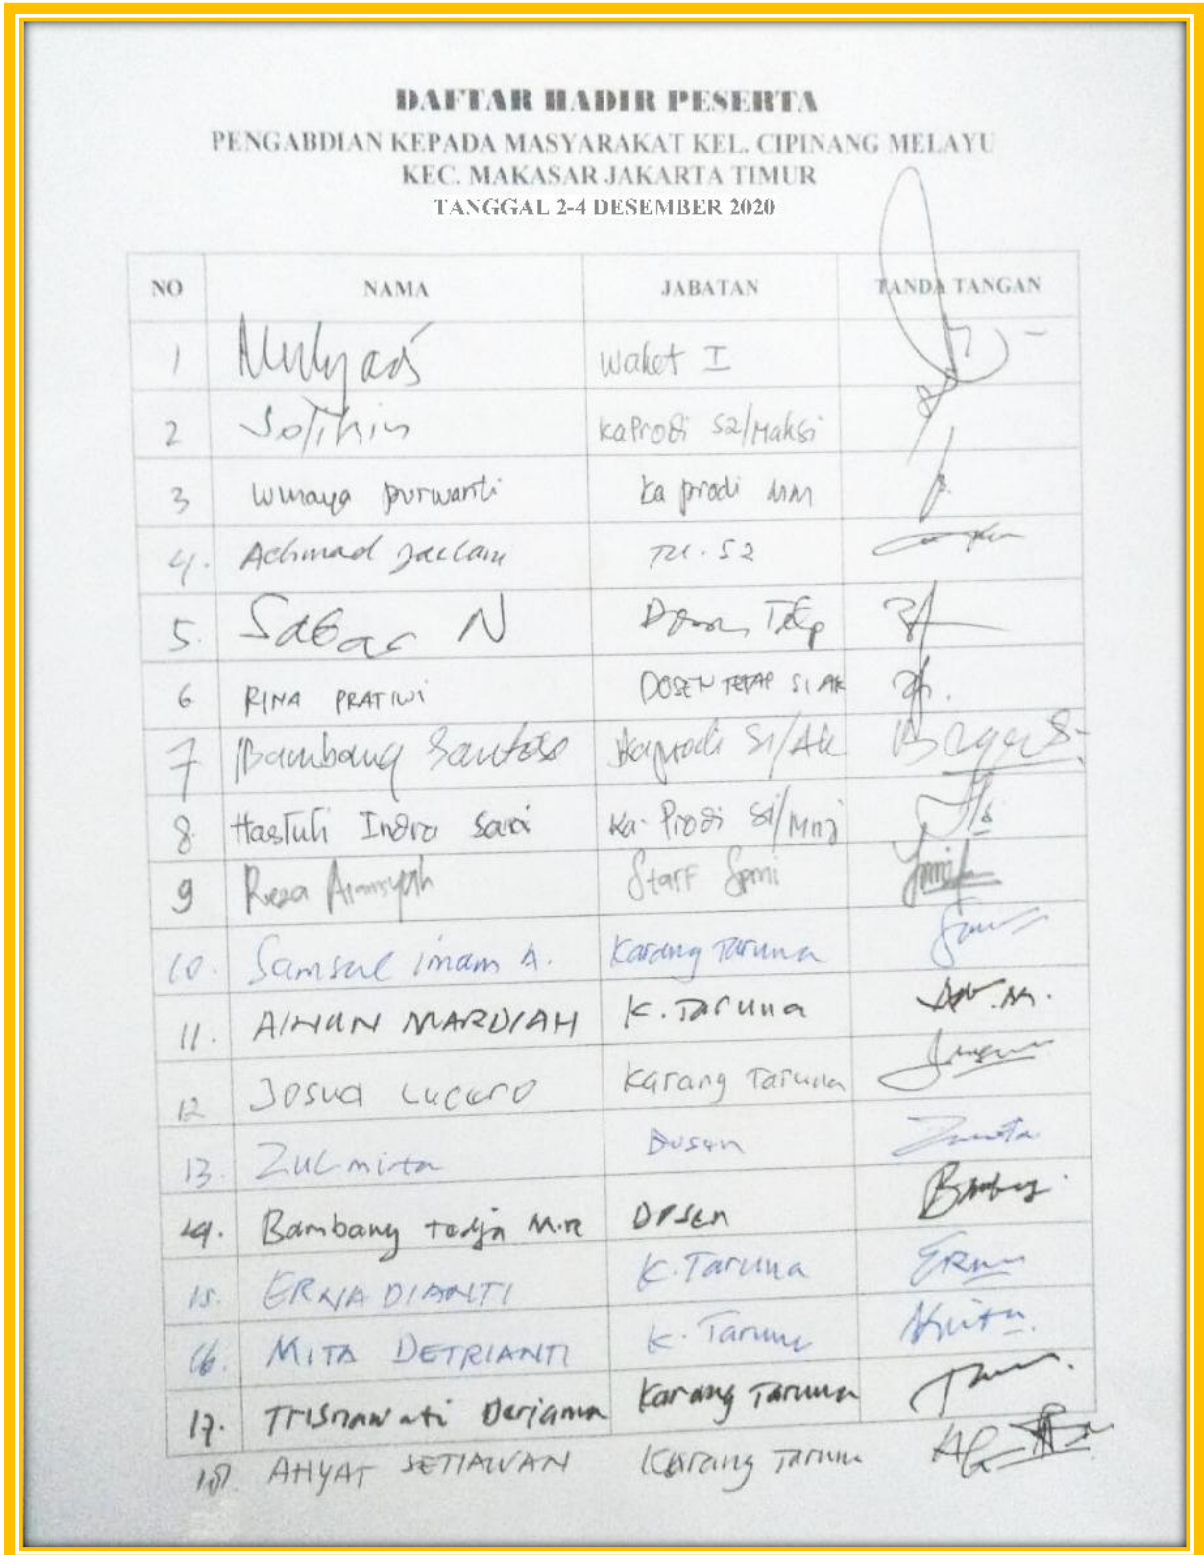 DAFTAR HADIR PESERTA
PENGABDIAN KEPADA MASYARAKAT KEL. CIPINANG MELAYU
KEC. MAKASAR JAKARTA TIMUR
TANGGAL 2-4 DESEMBER 2020
NO NAMA JABATAN TANDA TANGAN
1 Mulyadi Waket I
2 Solikin KaProdi S2/Maksi
3 purwanti Ka prodi MM
4. Achmad Jaelani TU. S2
5. Sabar N Dosen Tetap
6 RINA PRATIWI DOSEN TETAP S1 AK
7 Bambang Santoso Kaprodi S1/Ak
8. Hastuti Indra Sari Ka. Prodi S1/Mnj
9 Reza Staff Spmi
10. Samsul imam A. Karang Taruna
11. AINUN MARDIAH K. Taruna
12 Josua Lucero Karang Taruna
13. Zulmita Dosen
14. Bambang Tedja M.R Dosen
15. ERNA DIANTI K. Taruna ERna
16. MITA DETRIANTI K. Taruna
17. Trisnawati Derjama Karang Taruna
18. AHYAT SETIAWAN Karang Taruna